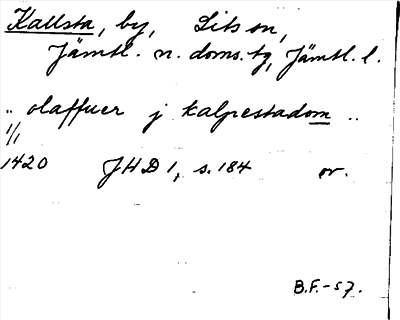 Kallsta, by, Lits sn,
Jämtl. n. doms. tg, Jämtl. l.
.. olaffuer j kalpestadom ..
1/1
1420 JHD 1, s. 184 or.
B.F.-57.